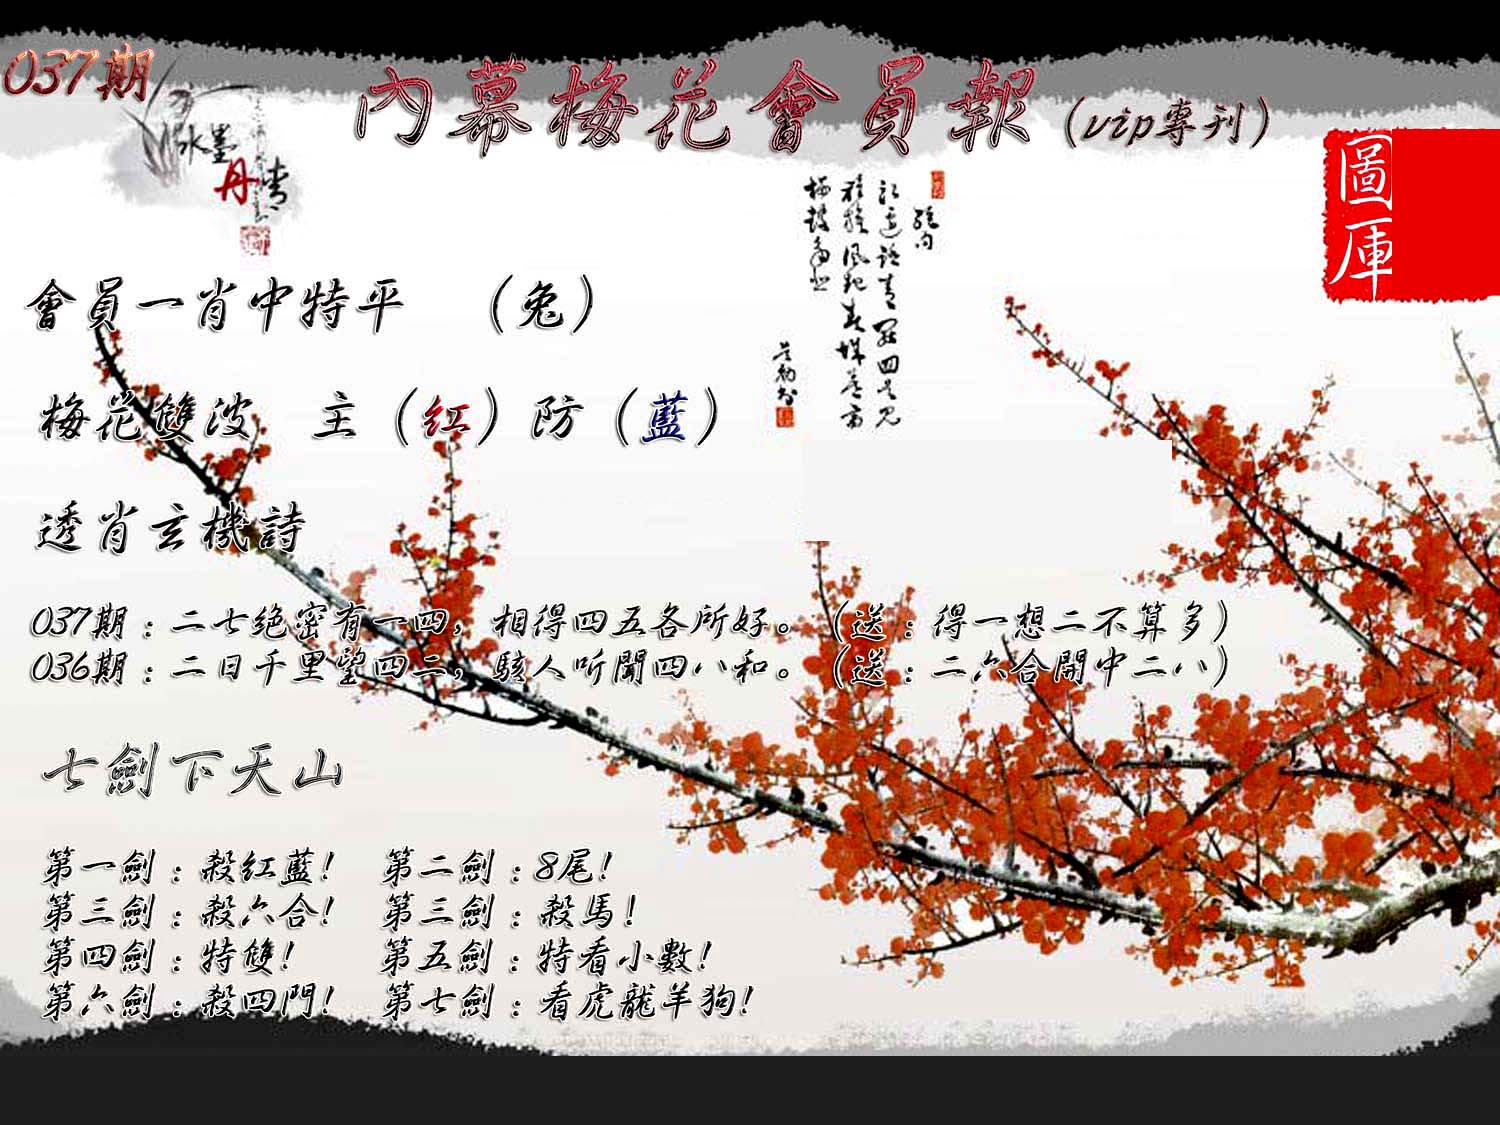 037期
內幕梅花會員報(vip專刊)
水墨
丹青
圖庫
絕句
會員一肖中特平 (兔)
梅花雙波 主(紅)防(藍)
透肖玄機詩
037期:二七绝密有一四,相得四五各所好。(送:得一想二不算多)
036期:二日千里望四二,駭人听聞四八和。(送:二六合開中二八)
七劍下天山
第一劍:殺紅藍! 第二劍:8尾!
第三劍:殺六合! 第三劍:殺馬!
第四劍:特雙! 第五劍:特看小數!
第六劍:殺四門! 第七劍:看虎龍羊狗!